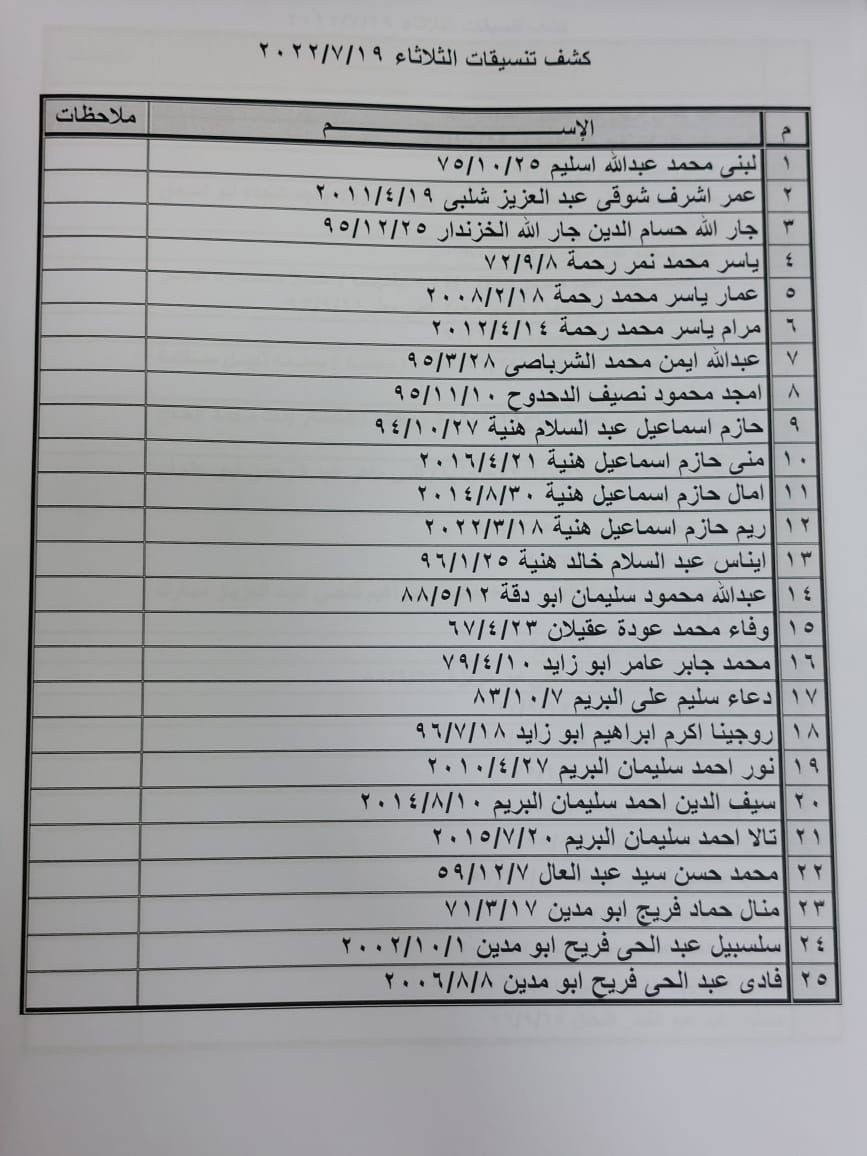 كشف تنسيقات الثلاثاء ٢٠٢٢/٧/١٩
م الإســـــــــــــــــــــم ملاحظات
١ لبنى محمد عبدالله اسليم ٧٥/١٠/٢٥
٢ عمر اشرف شوقى عبد العزيز شلبى ٢٠١١/٤/١٩
٣ جار الله حسام الدين جار الله الخزندار ٩٥/١٢/٢٥
٤ ياسر محمد نمر رحمة ٧٢/٩/٨
٥ عمار ياسر محمد رحمة ٢٠٠٨/٢/١٨
٦ مرام ياسر محمد رحمة ٢٠١٢/٤/١٤
٧ عبدالله ايمن محمد الشرباصى ٩٥/٣/٢٨
٨ امجد محمود نصيف الدحدوح ٩٥/١١/١٠
٩ حازم اسماعيل عبد السلام هنية ٩٤/١٠/٢٧
١٠ منى حازم اسماعيل هنية ٢٠١٦/٤/٢١
١١ امال حازم اسماعيل هنية ٢٠١٤/٨/٣٠
١٢ ريم حازم اسماعيل هنية ٢٠٢٢/٣/١٨
١٣ ايناس عبد السلام خالد هنية ٩٦/١/٢٥
١٤ عبدالله محمود سليمان ابو دقة ٨٨/٥/١٢
١٥ وفاء محمد عودة عقيلان ٦٧/٤/٢٣
١٦ محمد جابر عامر ابو زايد ٧٩/٤/١٠
١٧ دعاء سليم على البريم ٨٣/١٠/٧
١٨ روجينا اكرم ابراهيم ابو زايد ٩٦/٧/١٨
١٩ نور احمد سليمان البريم ٢٠١٠/٤/٢٧
٢٠ سيف الدين احمد سليمان البريم ٢٠١٤/٨/١٠
٢١ تالا احمد سليمان البريم ٢٠١٥/٧/٢٠
٢٢ محمد حسن سيد عبد العال ٥٩/١٢/٧
٢٣ منال حماد فريج ابو مدين ٧١/٣/١٧
٢٤ سلسبيل عبد الحى فريح ابو مدين ٢٠٠٢/١٠/١
٢٥ فادى عبد الحى فريح ابو مدين ٢٠٠٦/٨/٨